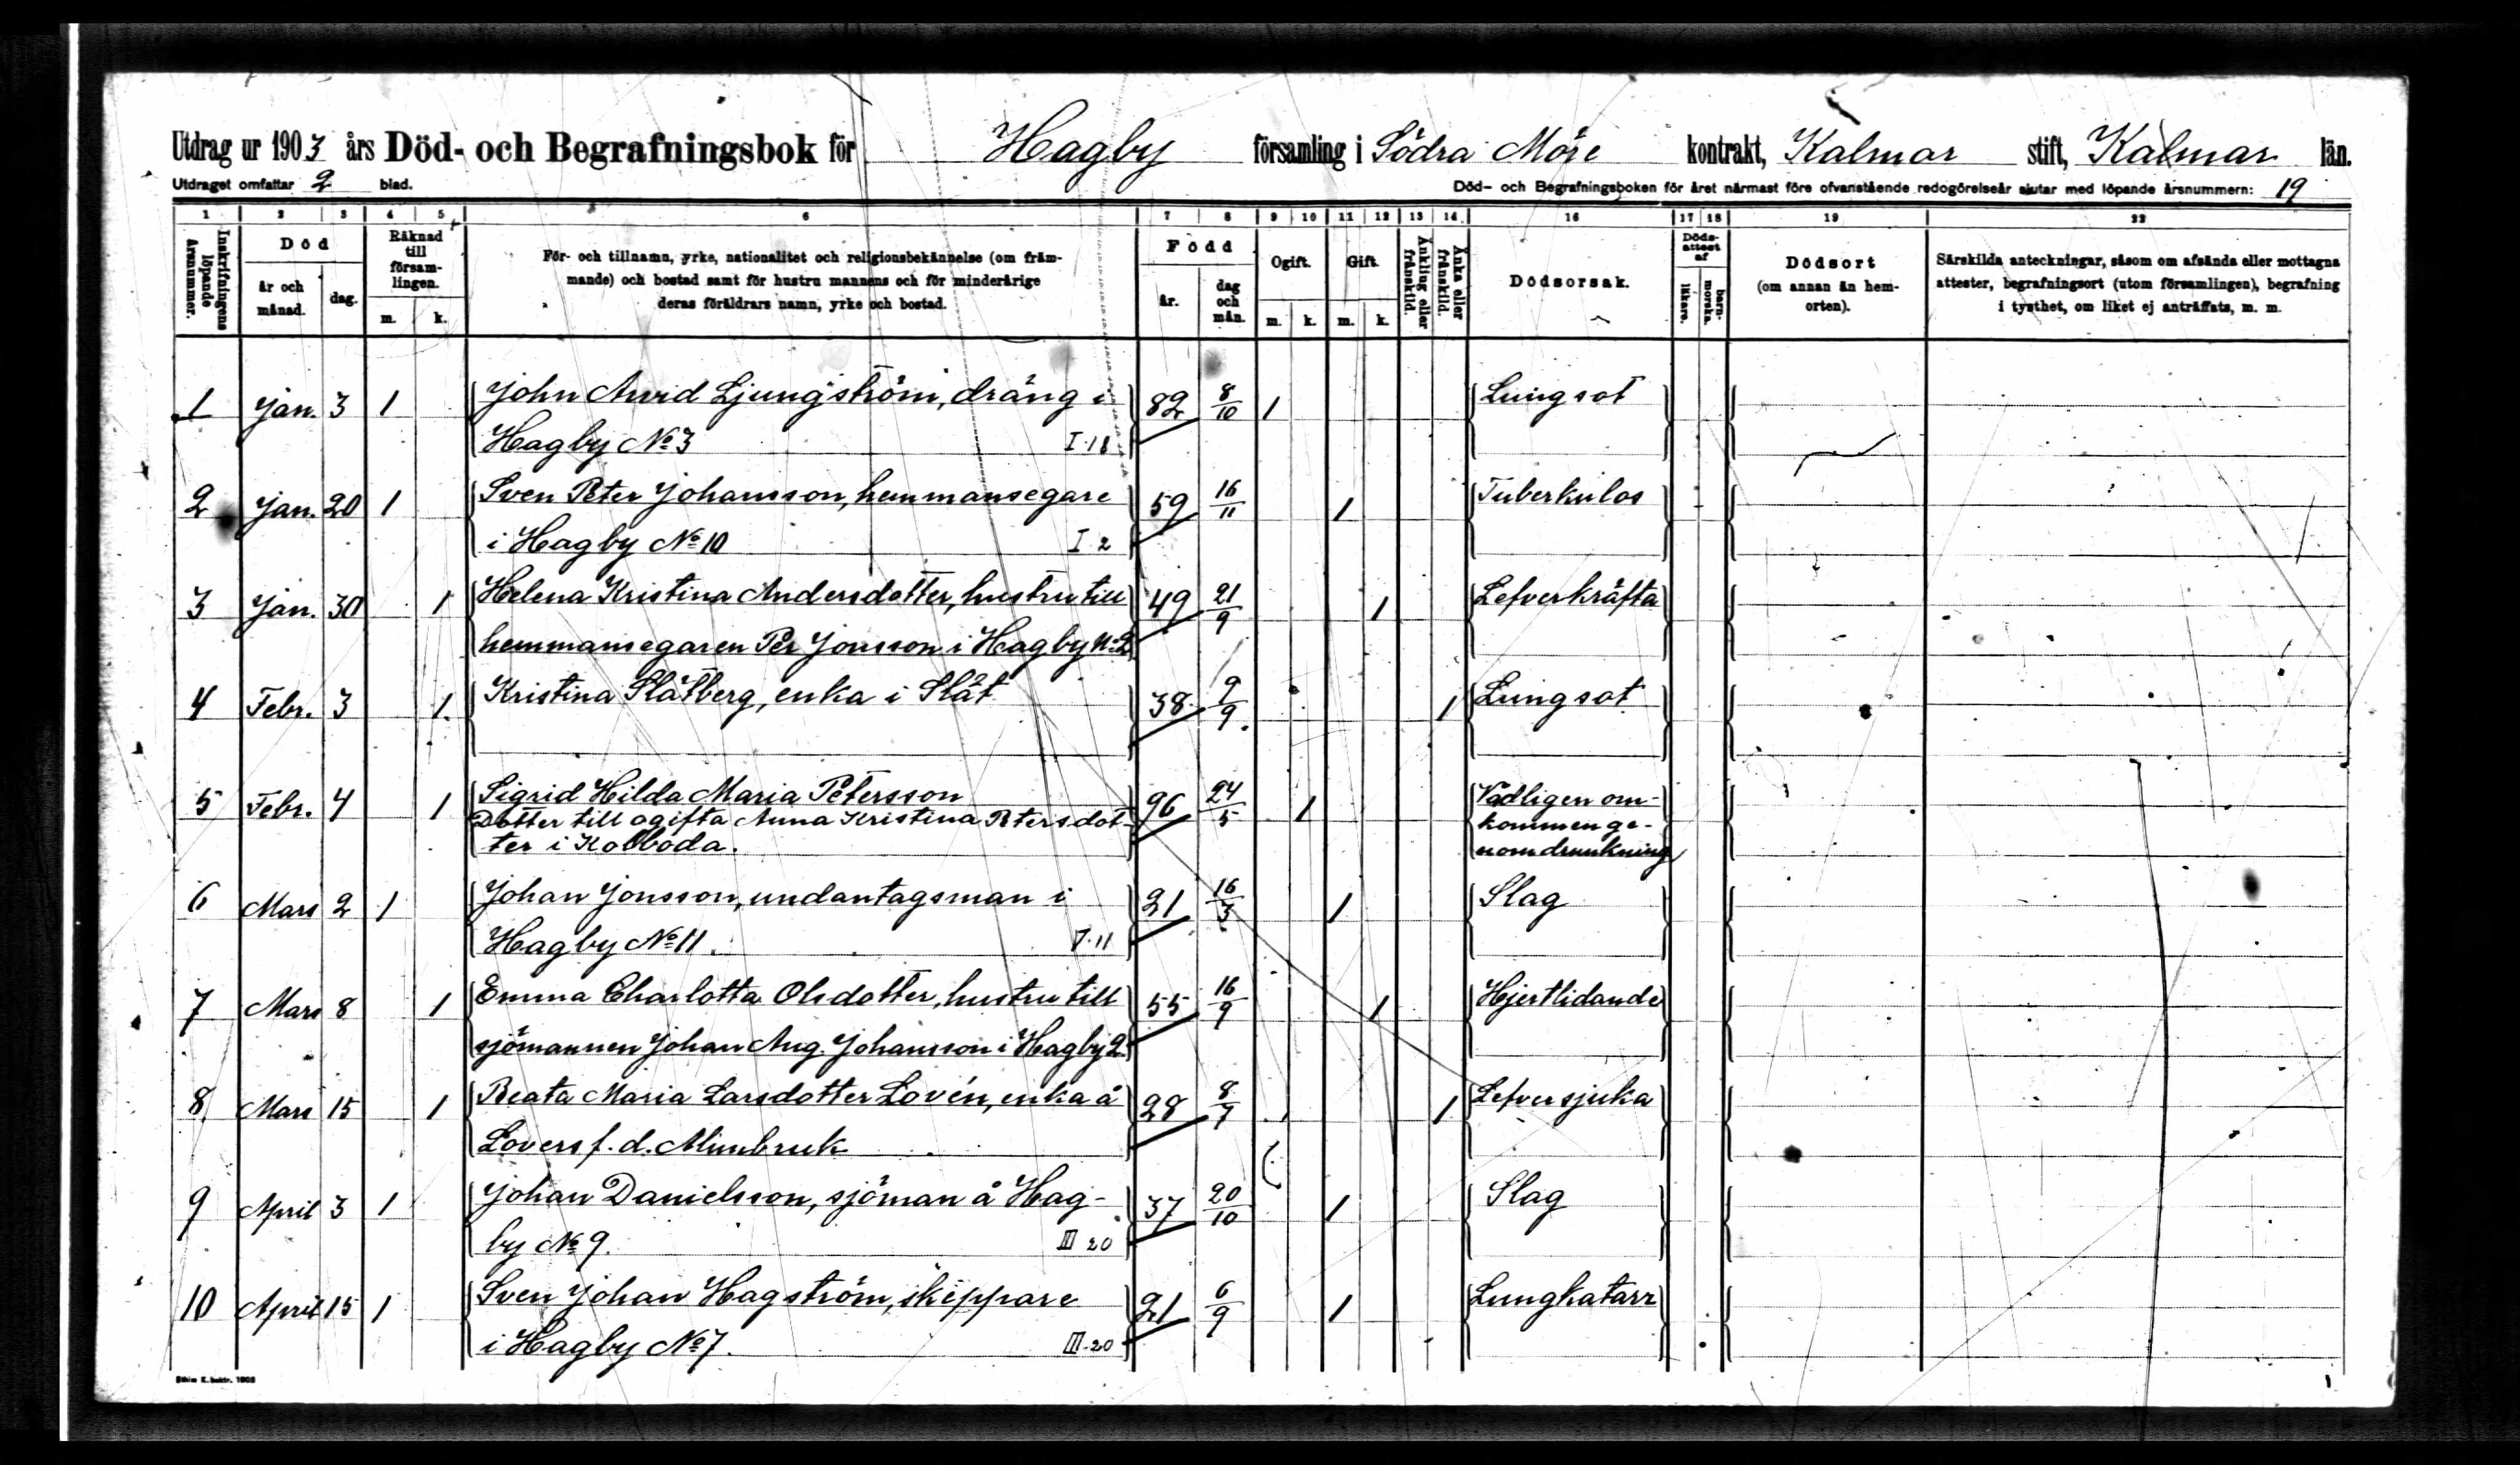 Utdrag ur 1903 års Död- och Begrafningsbok för Hagby församling i Södra Möre kontrakt, Kalmar stift, Kalmar län.
Utdraget omfattar 2 blad. Död- och Begrafningsboken för året närmast före ofvanstående redogörelseår slutar med löpande årsnummern: 19
1 2 3 4 5 6 7 8 9 10 11 12 13 14 16 17 18 19 22
Inskrifningens löpande årsnummer.
Död
år och månad.
dag.
Räknad till församlingen.
m. k.
För- och tillnamn, yrke, nationalitet och religionsbekännelse (om främ-
mande) och bostad samt för hustru mannens och för minderårige
deras föräldrars namn, yrke och bostad.
Född
år.
dag och mån.
Ogift.
m. k.
Gift.
m. k.
Änkling eller frånskild.
Änka eller frånskild.
Dödsorsak.
Döds-attest af
läkare.
barn-morska.
Dödsort
(om annan än hem-
orten).
Särskilda anteckningar, såsom om afsända eller mottagna
attester, begrafningsort (utom församlingen), begrafning
i tysthet, om liket ej anträffats, m. m.
1 Jan. 3 1 John Arvid Ljungström, dräng i 82 8/10 1 Lungsot
Hagby No 3 I.18
2 Jan. 20 1 Sven Peter Johansson, hemmansegare 59 16/11 1 Tuberkulos
i Hagby No 10 I 2
3 Jan. 30 1 Helena Kristina Andersdotter, hustru till 49 21/9 1 Lefverkräfta
hemmansegaren Per Jonsson i Hagby No 2
4 Febr. 3 1 Kristina Slätberg, enka i Slät 38 9/9 1 Lungsot
5 Febr. 4 1 Sigrid Hilda Maria Petersson 96 24/5 1 Vådligen om-
Dotter till ogifta Anna Kristina Petersdot- kommen ge-
ter i Kolboda. nom drunkning
6 Mars 2 1 Johan Jonsson, undantagsman i 21 16/3 1 Slag
Hagby No 11. I.11
7 Mars 8 1 Emma Charlotta Olsdotter, hustru till 55 16/9 1 Hjertlidande
sjömannen Johan Aug. Johansson i Hagby 2
8 Mars 15 1 Beata Maria Larsdotter Lovén, enka å 28 8/7 1 Lefversjuka
Lovers f. d. Alunbruk
9 April 3 1 Johan Danielsson, sjöman å Hag- 37 20/10 1 Slag
by No 9. III 20
10 April 15 1 Sven Johan Hagström, skeppare 21 6/9 1 Lungkatarr
i Hagby No 7. III.20
Sthlm K. boktr. 1902
1